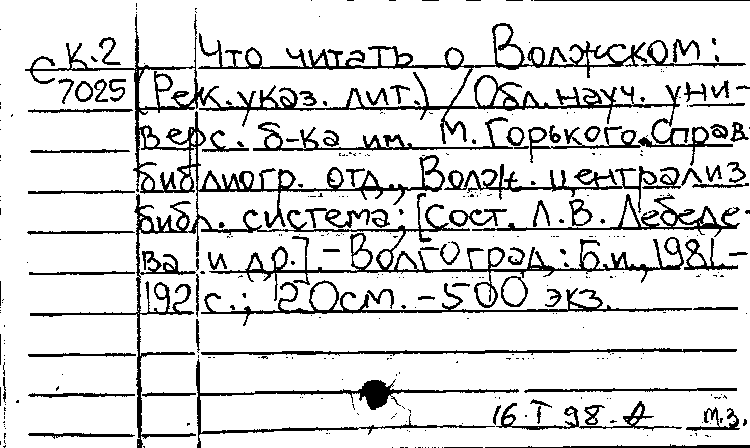 К.2 Что читать о Волжском:
С 7025 (Рек. указ. лит.) / Обл. науч. уни-
верс. б-ка им. М. Горького. Справ.
библиогр. отд., Волж. централиз
библ. система; [Сост. Л.В. Лебеде-
ва и др.]. - Волгоград: Б.и., 1981.-
192 с.; 20см. - 500 экз.
16.I 98. м.з.